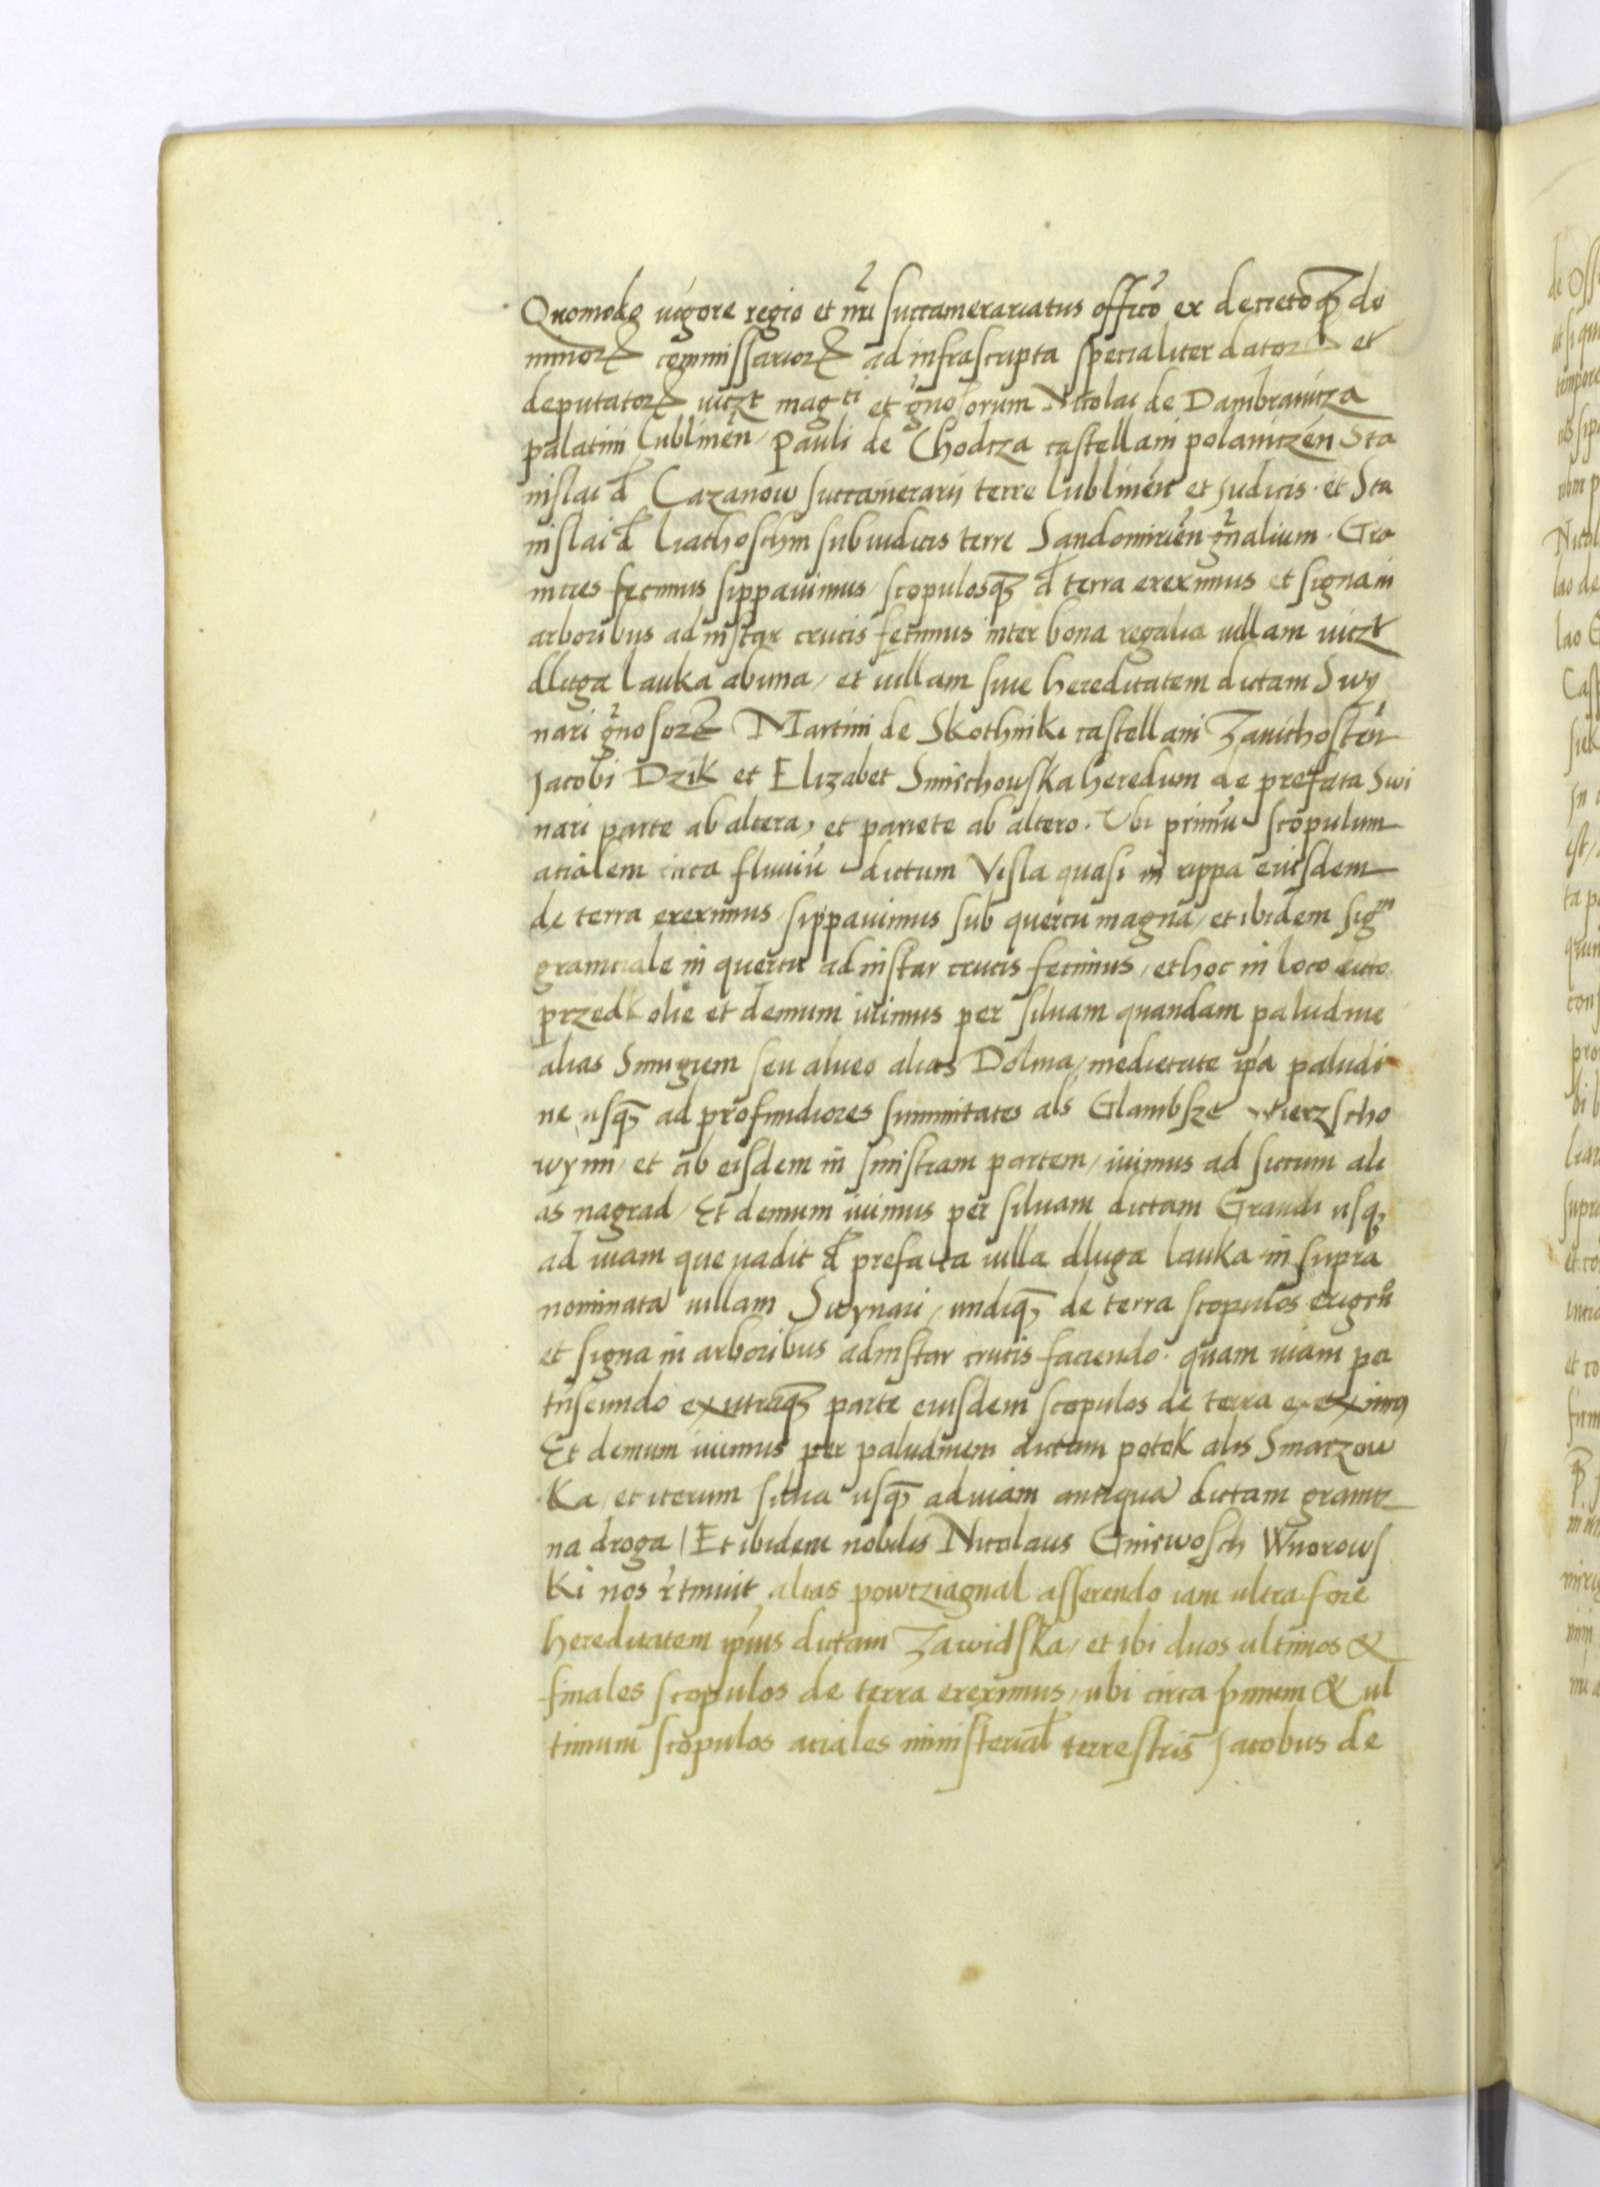 Quomodo vigore regio et nri succamerariatus officio ex decretoq do
minorꝝ commissariorꝝ ad infrascripta specialiter datorꝝ et
deputatorꝝ viczt mag^ci et gnosorum Nicolai de Dambrawicza
palatini Lublinen / Pauli de Chodcza castellani polaniczen Sta
nislai d Cazanow succamerarij terre lublinen et Judicis · et Sta
nislai d Liathoschin subiudicis terre Sandomirien gnalium · Gra
nicies fecimus sippavimus / scopulosq d terra ereximus et signa in
arboribus ad instar crucis fecimus inter bona regalia villam viczt
dluga lauka ab una / et villam sive hereditatem dictam Swy
nari gnosorꝝ Martini de Skothniki castellani Zavichosten
Jacobi Dzik et Elizabet Smischowska heredum de prefata Swi
nari parte ab altera, et pariete ab altero · Ubi primu scopulum
acialem circa fluviu dictum Visla quasi in rippa eiusdem
de terra ereximus / sippavimus sub quercu magna / et ibidem sig^m
graniciale in quercu ad instar crucis fecimus / et hoc in loco
przedkolie et demum ivimus per silvam quandam paludine
alias Smugiem seu alveo alias Dolina / medietate ipa paludi
ne usq ad profundiores summitates als Glambsze Wierzscho
wynn / et ab eisdem in sinistram partem / ivimus ad sicrum ali
as nagrad / Et demum ivimus per silvam dictam Grandi usq
ad viam que vadit d prefata villa dluga lauka in supra
nominata villam Swynari / undiq de terra scopulos
et signa in arboribus ad instar crucis faciendo · quam viam per
tnseundo ex utraq parte eiusdem scopulos de terra ereximus
Et demum ivimus per paludinem dictam potok als Smarzow
ka / et iterum silva usq ad viam antiqua dictam granicz
na droga / Et ibidem nobilis Nicolaus Gniewosch Wnorows
ki nos rtinuit alias powcziagnal asserendo iam ultra fore
hereditatem ipius dictam Zawidska / et ibi duos ultimos &
finales scopulos de terra ereximus / ubi circa pimum & ul
timum scopulos aciales ministerial terrestris Jacobus de